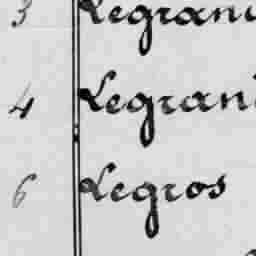 3 Legran
4 Legran
6 Legros